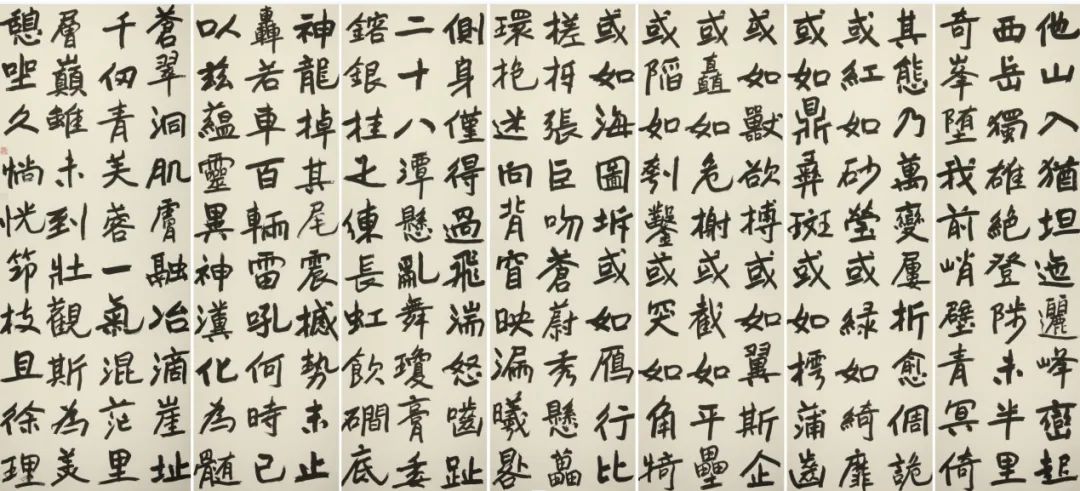 他山入猶坦迤邐峰巒起
西岳獨雄絕登陟未半里
奇峯墮我前峭壁青冥倚
其態乃萬變屢折愈倜詭
或紅如砂瑩或綠如綺靡
或如鼎彝斑或如樗蒲齒
或如獸欲搏或如翼斯企
或矗如危榭或截如平壘
或陷如刳鑿或突如角犄
或如海圖坼或如鴈行比
槎枒張巨吻蒼蔚秀懸藟
環抱迷向背窅映漏曦晷
側身僅得過飛湍怒嚙趾
二十八潭懸亂舞瓊膏委
鎔銀挂疋練長虹飲磵底
神龍掉其尾震撼勢未止
轟若車百輛雷吼何時已
以茲蘊靈異神瀵化為髓
蒼翠洞肌膚融冶滴崖址
千仞青芙蓉一氣混茫里
層巔雖未到壯觀斯為美
憩坐久惝恍筇枝且徐理